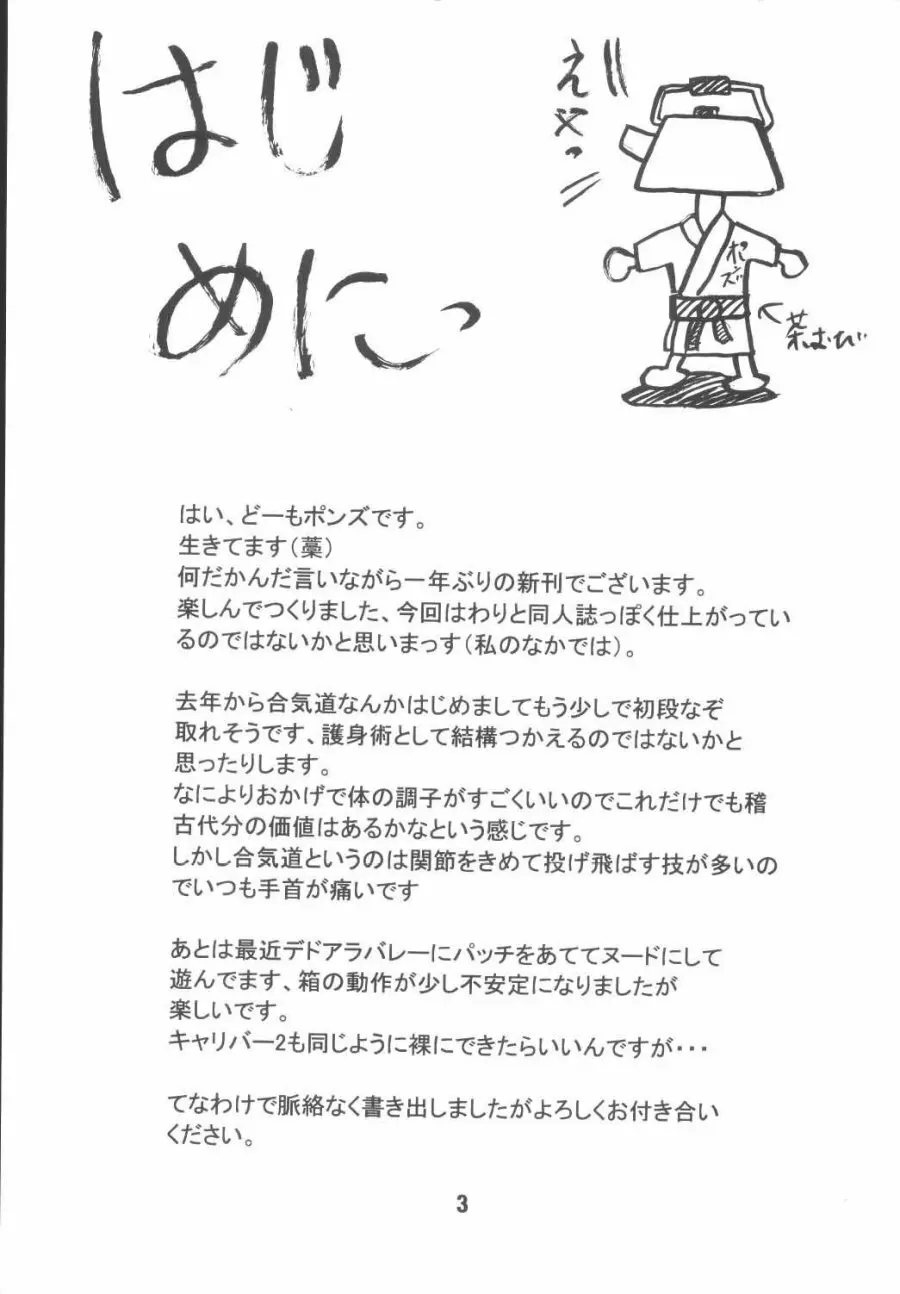 はじ
めにっ
えいっ
ポンズ
茶おび
はい、どーもポンズです。
生きてます（藁）
何だかんだ言いながら一年ぶりの新刊でございます。
楽しんでつくりました、今回はわりと同人誌っぽく仕上がってい
るのではないかと思いまっす（私のなかでは）。
去年から合気道なんかはじめましてもう少しで初段なぞ
取れそうです、護身術として結構つかえるのではないかと
思ったりします。
なによりおかげで体の調子がすごくいいのでこれだけでも稽
古代分の価値はあるかなという感じです。
しかし合気道というのは関節をきめて投げ飛ばす技が多いの
でいつも手首が痛いです
あとは最近デドアラバレーにパッチをあててヌードにして
遊んでます、箱の動作が少し不安定になりましたが
楽しいです。
キャリバー2も同じように裸にできたらいいんですが・・・
てなわけで脈絡なく書き出しましたがよろしくお付き合い
ください。
3